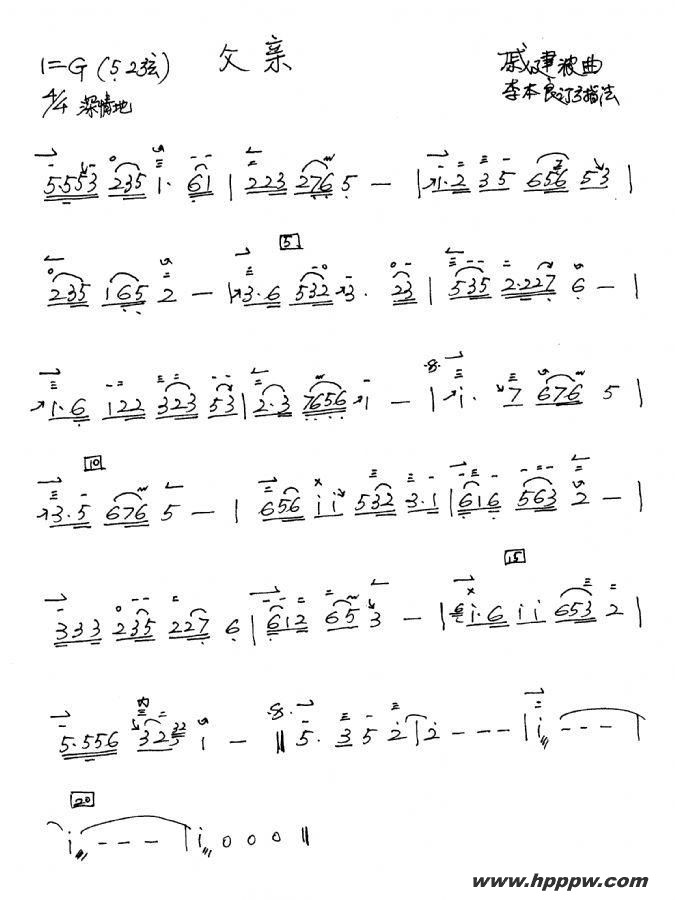 1=G（5 2弦） 父亲 戚建波曲
4/4 深情地 李本良订弓指法
5·553 235 1· 61 | 223 276 5 — | 1·2 35 656 53 |
235 165 2 — | 5 3·6 532 3· 23 | 535 2·227 6 — |
1·6 122 323 53 | 2·3 7656 1 — | 8 i· 7 676 5 |
10 3·5 676 5 — | 656 ii 532 3·1 | 616 563 2 — |
333 235 227 6 | 612 65 3 — | 15 i·6 ii 653 2 |
5·556 323 i — ‖ 8 5· 3 5 2 | 2 – – – | i – – – |
20 i – – – | i 0 0 0 ‖
www.hpppw.com